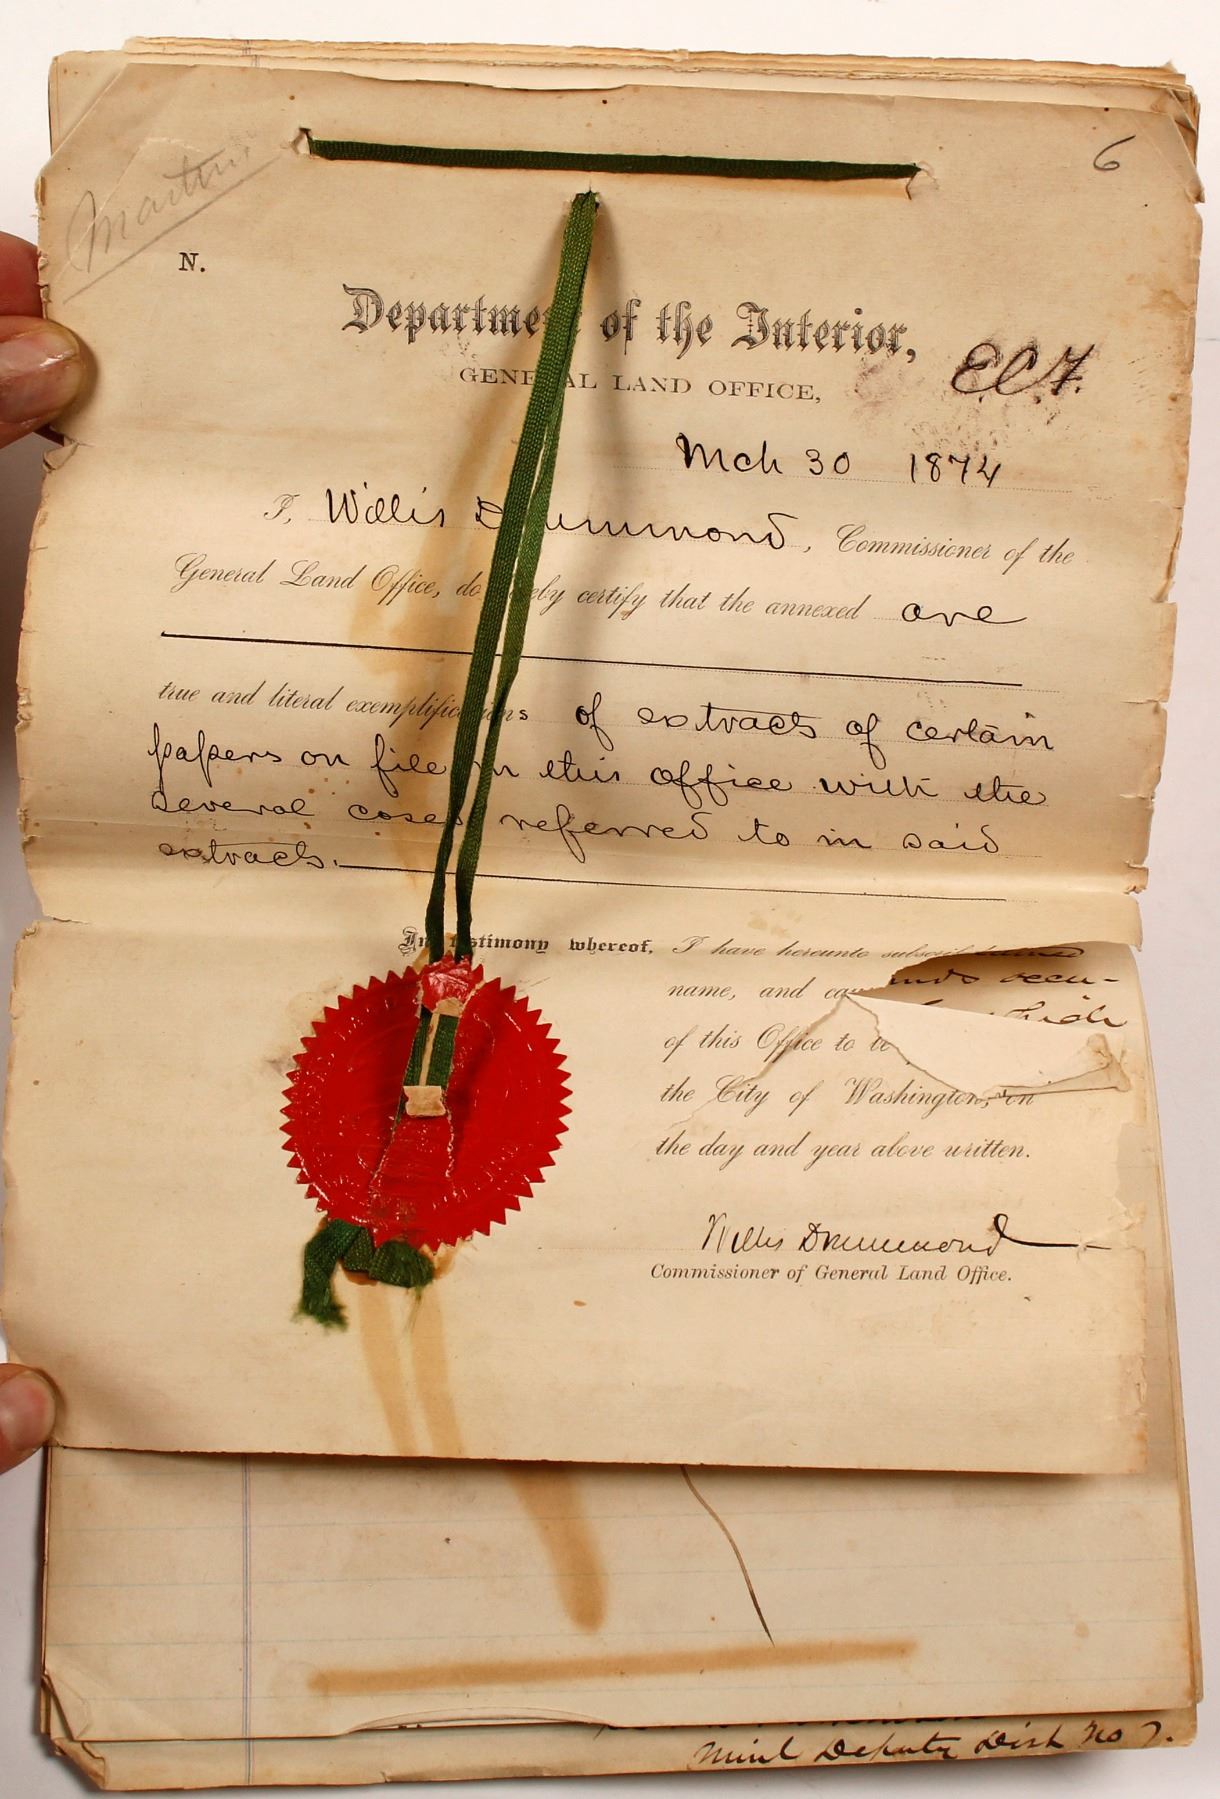 Martin
6
N.
Department of the Interior,
GENERAL LAND OFFICE,
E.C.F.
Mch 30 1874
I, Willis Drummond, Commissioner of the
General Land Office, do hereby certify that the annexed are
true and literal exemplifications of extracts of certain
papers on file in this office with the
several cases referred to in said
extracts.
In testimony whereof, I have hereunto
name, and
of this Office to
the City of Washington, on
the day and year above written.
Willis Drummond
Commissioner of General Land Office.
Minl Deputy Dist No 7.